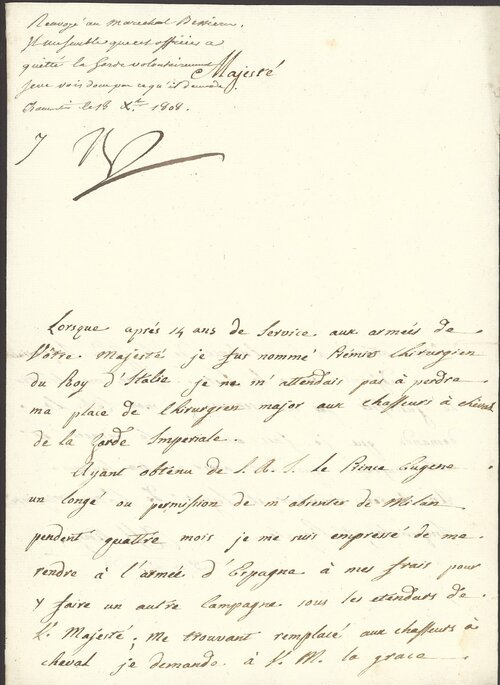 Renvoyé au marechal Bessieres.
Il me semble que cet officier a
quitté la Garde volontairement
je ne vois donc pas ce qu'il demande
le 18 Xbre 1808.
Majesté
Lorsque aprés 14 ans de service aux armées de
Vôtre Majesté je fus nommé Prémier Chirurgien
du Roy d'Italie je ne m'attendais pas à perdre
ma place de Chirurgien major aux chasseurs à cheval
de la Garde Imperiale.
Ayant obtenu de S. A. I. le Prince Eugene
un Congé ou permission de m'absenter de Milan
pendent quattre mois je me suis empressé de me
rendre à l'armée d'Espagne à mes frais pour
y faire un autre Campagne sous les etenduts de
V. Majesté; me trouvant remplacé aux chasseurs à
cheval je demande à V. M. la grace